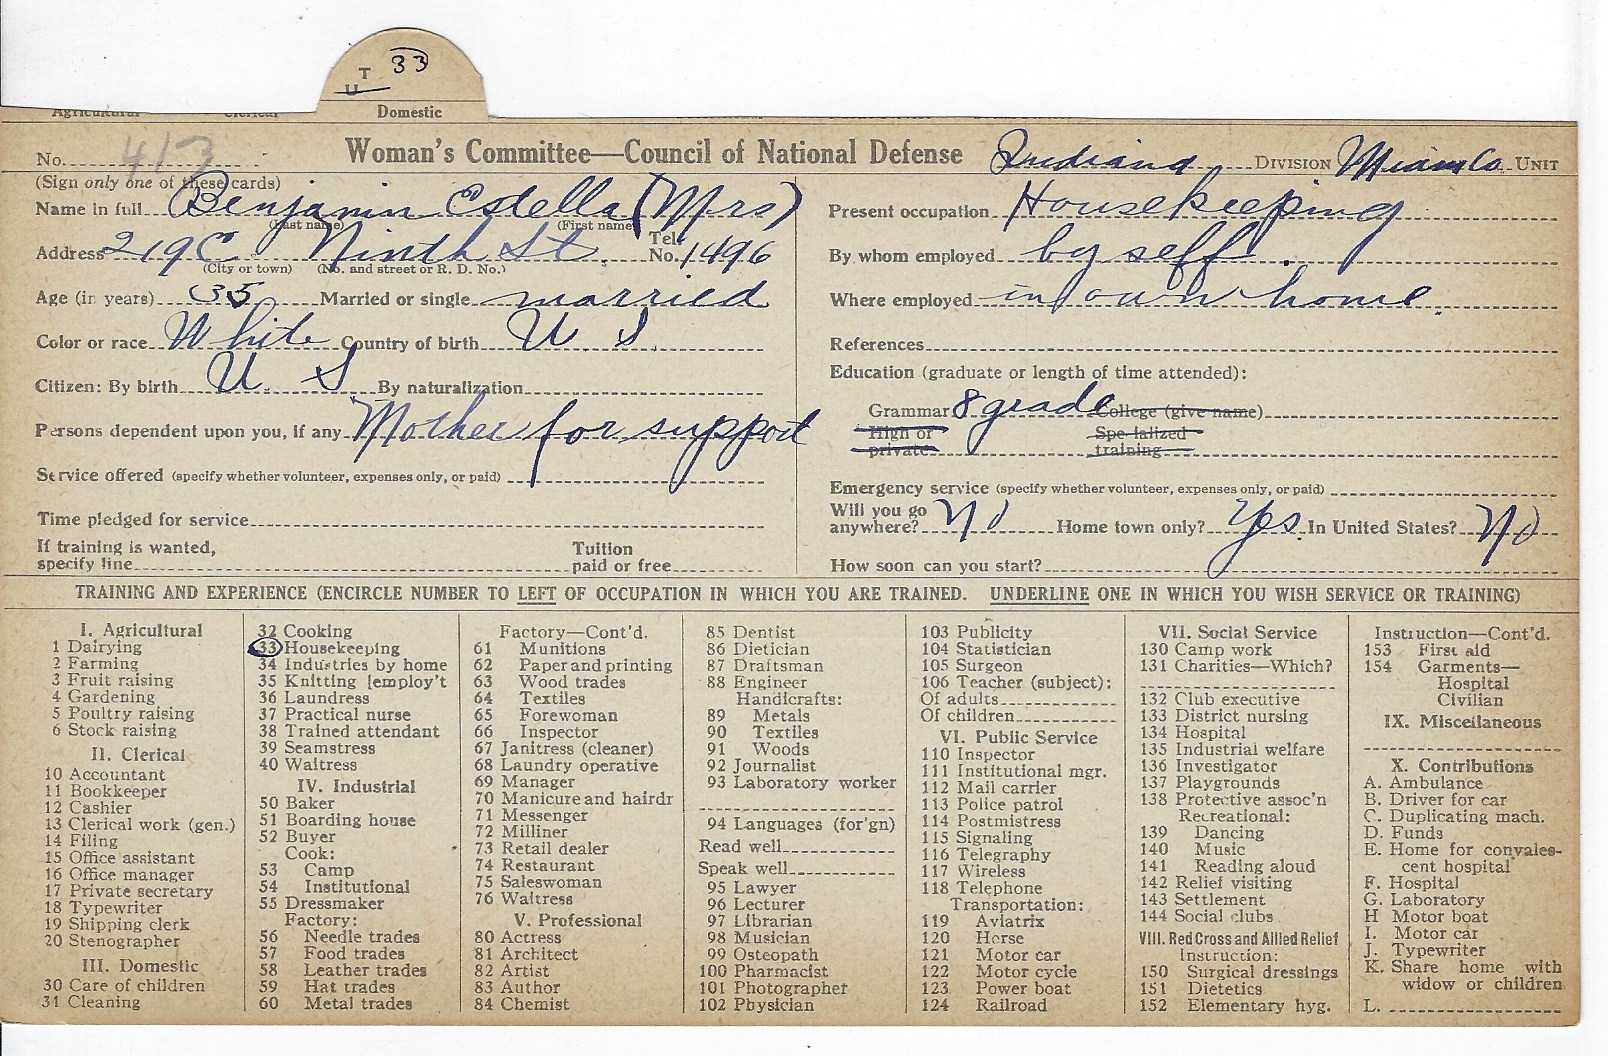 T 33
U
Agricultural Clerical Domestic
No. 413 Woman's Committee—Council of National Defense Indiana DIVISION Miami Co. UNIT
(Sign only one of these cards)
Name in full Benjamin Estella (Mrs)
(Last name) (First name)
Address 219 E Ninth St. Tel. No. 1496
(City or town) (No. and street or R. D. No.)
Age (in years) 35 Married or single married
Color or race White Country of birth U. S.
Citizen: By birth U. S By naturalization
Persons dependent upon you, if any Mother for support
Service offered (specify whether volunteer, expenses only, or paid)
Time pledged for service
If training is wanted,
specify line Tuition paid or free
Present occupation Housekeeping
By whom employed by self.
Where employed in own home.
References
Education (graduate or length of time attended):
Grammar 8 grade College (give name)
High or private Specialized training
Emergency service (specify whether volunteer, expenses only, or paid)
Will you go anywhere? No Home town only? Yes. In United States? No
How soon can you start?
TRAINING AND EXPERIENCE (ENCIRCLE NUMBER TO LEFT OF OCCUPATION IN WHICH YOU ARE TRAINED. UNDERLINE ONE IN WHICH YOU WISH SERVICE OR TRAINING)
I. Agricultural
1 Dairying
2 Farming
3 Fruit raising
4 Gardening
5 Poultry raising
6 Stock raising
II. Clerical
10 Accountant
11 Bookkeeper
12 Cashier
13 Clerical work (gen.)
14 Filing
15 Office assistant
16 Office manager
17 Private secretary
18 Typewriter
19 Shipping clerk
20 Stenographer
III. Domestic
30 Care of children
31 Cleaning
32 Cooking
33 Housekeeping
34 Industries by home
35 Knitting [employ't
36 Laundress
37 Practical nurse
38 Trained attendant
39 Seamstress
40 Waitress
IV. Industrial
50 Baker
51 Boarding house
52 Buyer
Cook:
53 Camp
54 Institutional
55 Dressmaker
Factory:
56 Needle trades
57 Food trades
58 Leather trades
59 Hat trades
60 Metal trades
Factory—Cont'd.
61 Munitions
62 Paper and printing
63 Wood trades
64 Textiles
65 Forewoman
66 Inspector
67 Janitress (cleaner)
68 Laundry operative
69 Manager
70 Manicure and hairdr
71 Messenger
72 Milliner
73 Retail dealer
74 Restaurant
75 Saleswoman
76 Waitress
V. Professional
80 Actress
81 Architect
82 Artist
83 Author
84 Chemist
85 Dentist
86 Dietician
87 Draftsman
88 Engineer
Handicrafts:
89 Metals
90 Textiles
91 Woods
92 Journalist
93 Laboratory worker
94 Languages (for'gn)
Read well
Speak well
95 Lawyer
96 Lecturer
97 Librarian
98 Musician
99 Osteopath
100 Pharmacist
101 Photographer
102 Physician
103 Publicity
104 Statistician
105 Surgeon
106 Teacher (subject):
Of adults
Of children
VI. Public Service
110 Inspector
111 Institutional mgr.
112 Mail carrier
113 Police patrol
114 Postmistress
115 Signaling
116 Telegraphy
117 Wireless
118 Telephone
Transportation:
119 Aviatrix
120 Horse
121 Motor car
122 Motor cycle
123 Power boat
124 Railroad
VII. Social Service
130 Camp work
131 Charities—Which?
132 Club executive
133 District nursing
134 Hospital
135 Industrial welfare
136 Investigator
137 Playgrounds
138 Protective assoc'n
Recreational:
139 Dancing
140 Music
141 Reading aloud
142 Relief visiting
143 Settlement
144 Social clubs
VIII. Red Cross and Allied Relief
Instruction:
150 Surgical dressings
151 Dietetics
152 Elementary hyg.
Instruction—Cont'd.
153 First aid
154 Garments—
Hospital
Civilian
IX. Miscellaneous
X. Contributions
A. Ambulance
B. Driver for car
C. Duplicating mach.
D. Funds
E. Home for convales-
cent hospital
F. Hospital
G. Laboratory
H Motor boat
I. Motor car
J. Typewriter
K. Share home with
widow or children
L.